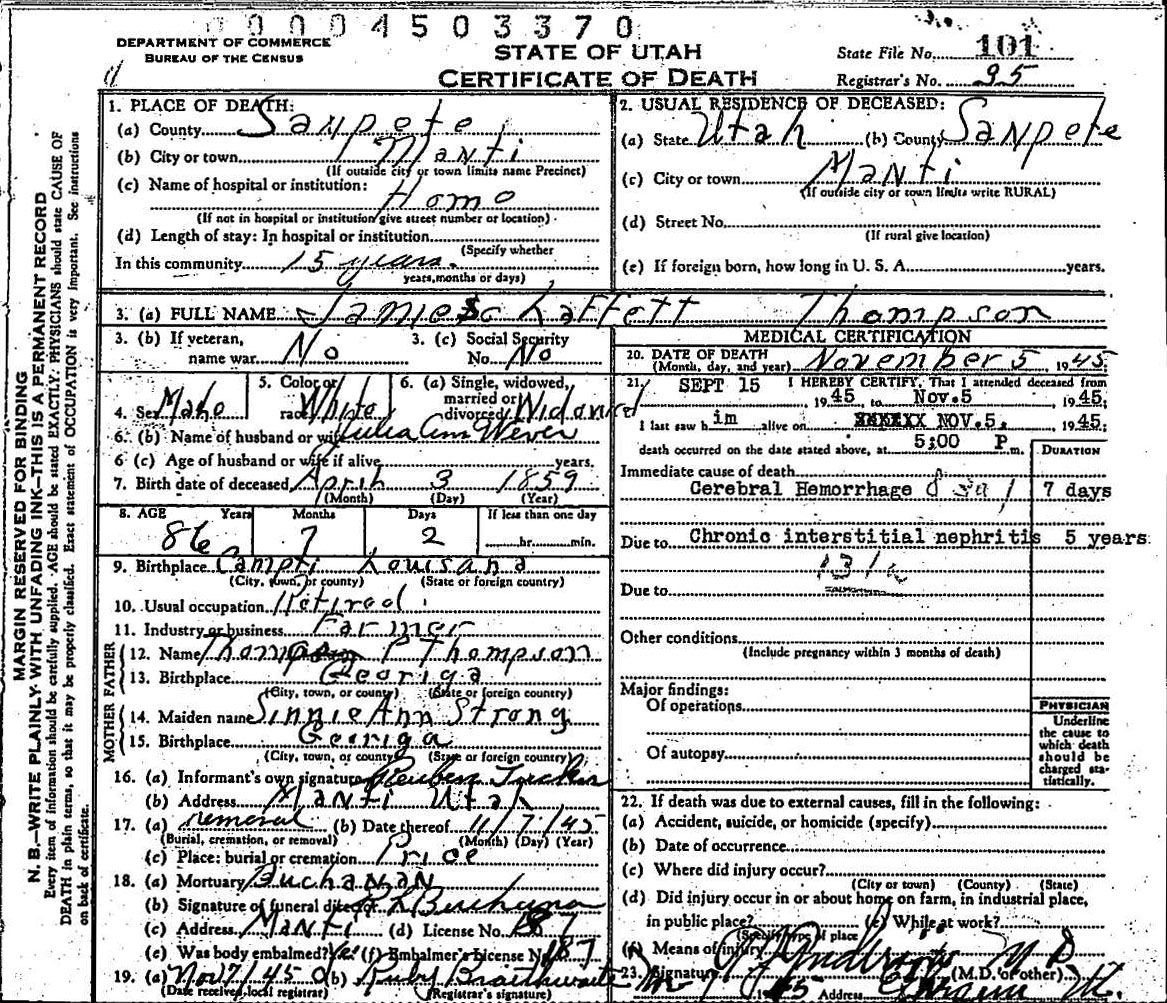 0004503370
DEPARTMENT OF COMMERCE
BUREAU OF THE CENSUS
STATE OF UTAH
CERTIFICATE OF DEATH
State File No. 101
Registrar's No. 95
MARGIN RESERVED FOR BINDING
N. B.—WRITE PLAINLY WITH UNFADING INK—THIS IS A PERMANENT RECORD
Every item of information should be carefully supplied. AGE should be stated EXACTLY. PHYSICIANS should state CAUSE OF
DEATH in plain terms, so that it may be properly classified. Exact statement of OCCUPATION is very important. See instructions
on back of certificate.
1. PLACE OF DEATH:
(a) County Sanpete
(b) City or town Manti
(If outside city or town limits name Precinct)
(c) Name of hospital or institution:
Home
(If not in hospital or institution give street number or location)
(d) Length of stay: In hospital or institution
(Specify whether
In this community 15 years.
years, months or days)
2. USUAL RESIDENCE OF DECEASED:
(a) State Utah (b) County Sanpete
(c) City or town Manti
(If outside city or town limits write RURAL)
(d) Street No.
(If rural give location)
(e) If foreign born, how long in U. S. A. years.
3. (a) FULL NAME James Laffett Thompson
3. (b) If veteran,
name war No
3. (c) Social Security
No. No
4. Sex Male
5. Color or
race White
6. (a) Single, widowed,
married or
divorced Widowed
6. (b) Name of husband or wife Julia Ann Wever
6 (c) Age of husband or wife if alive years.
7. Birth date of deceased April 3 1859
(Month) (Day) (Year)
8. AGE Years Months Days If less than one day
86 7 2 hr. min.
9. Birthplace Campti Louisana
(City, town, or county) (State or foreign country)
10. Usual occupation Retired
11. Industry or business Farmer
FATHER
12. Name P Thompson
13. Birthplace Georiga
(City, town, or county) (State or foreign country)
MOTHER
14. Maiden name Sinnie Ann Strong
15. Birthplace Georiga
(City, town, or county) (State or foreign country)
16. (a) Informant's own signature Reuben Tucker
(b) Address Manti Utah
17. (a) removal (b) Date thereof 11/7/45
(Burial, cremation, or removal) (Month) (Day) (Year)
(c) Place: burial or cremation Price
18. (a) Mortuary Buchanan
(b) Signature of funeral director
(c) Address Manti (d) License No.
(e) Was body embalmed? Yes (f) Embalmer's License No. 187
19. (a) Nov 7/45 (b) Ruby Braithwaite
(Date received local registrar) (Registrar's signature)
MEDICAL CERTIFICATION
20. DATE OF DEATH
(Month, day, and year) November 5, 1945
21. SEPT 15 I HEREBY CERTIFY, That I attended deceased from
1945, to Nov.5 1945;
I last saw him alive on NOV.5, 1945;
death occurred on the date stated above, at 5;00 P. m.
DURATION
Immediate cause of death
Cerebral Hemorrhage 7 days
Due to Chronic interstitial nephritis 5 years
131a
Due to
Other conditions
(Include pregnancy within 3 months of death)
Major findings:
Of operations
Of autopsy
PHYSICIAN
Underline
the cause to
which death
should be
charged sta-
tistically.
22. If death was due to external causes, fill in the following:
(a) Accident, suicide, or homicide (specify)
(b) Date of occurrence
(c) Where did injury occur?
(City or town) (County) (State)
(d) Did injury occur in or about home on farm, in industrial place,
in public place? (e) While at work?
(Specify type of place
(f) Means of injury
23. Signature M D (M.D. or other)
Address Ephraim Ut.